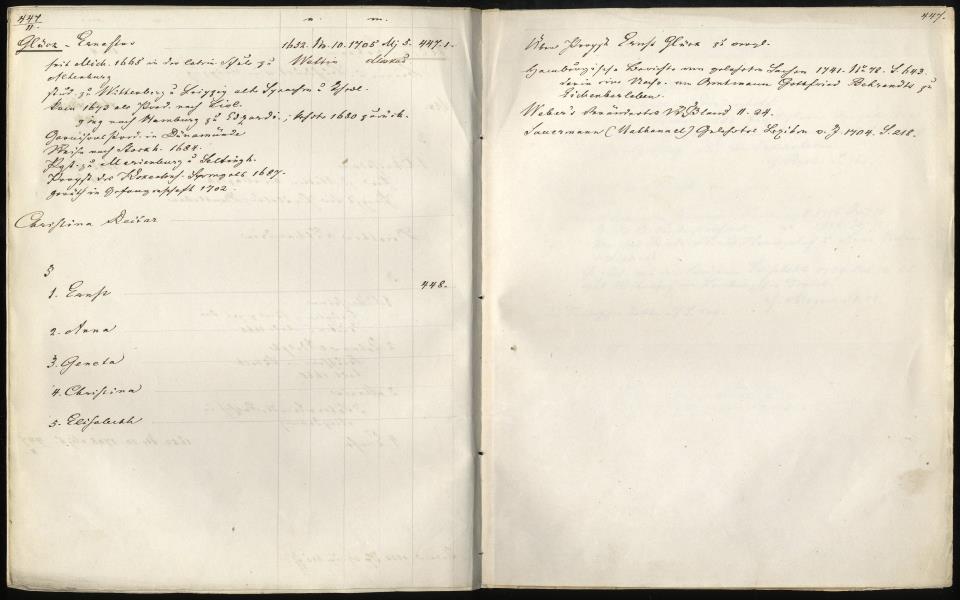 447
II.
n. m.
Glück - Ernestus 1652. M. 10. 1705 Mj 5. 447.1.
seit Mich. 1668 in der latein. Schule zu Wettin Moskau
Altenburg
stud. zu Wittenberg u Leipzig alte Sprachen u Theol.
kam 1673 als Pred. nach Livl.
ging nach Hamburg zu Edzardi; kehrte 1680 zurück.
Garnisonspred. in Dünamünde
Reise nach Stockh. 1684.
Past. zu Marienburg u Seltingh.
Propst des Kokenhus. Sprengels 1687.
gerieth in Gefangenschaft 1702.
Christina Reiter
5
1. Ernst 448.
2. Anna
3. Geneta
4. Christina
5. Elisabeth
447.
Über Propst Ernst Glück zu vergl.
Hamburgische Berichte von gelehrten Sachen 1741. No 78. S. 643.
darin eine Nachr. von Amtmann Gottfried Behrendts zu
Eichenbarleben.
Weber's verändertes Rußland II. 24.
(Nathanael) Gelehrtes Lexikon v. J. 1704. S. 218.